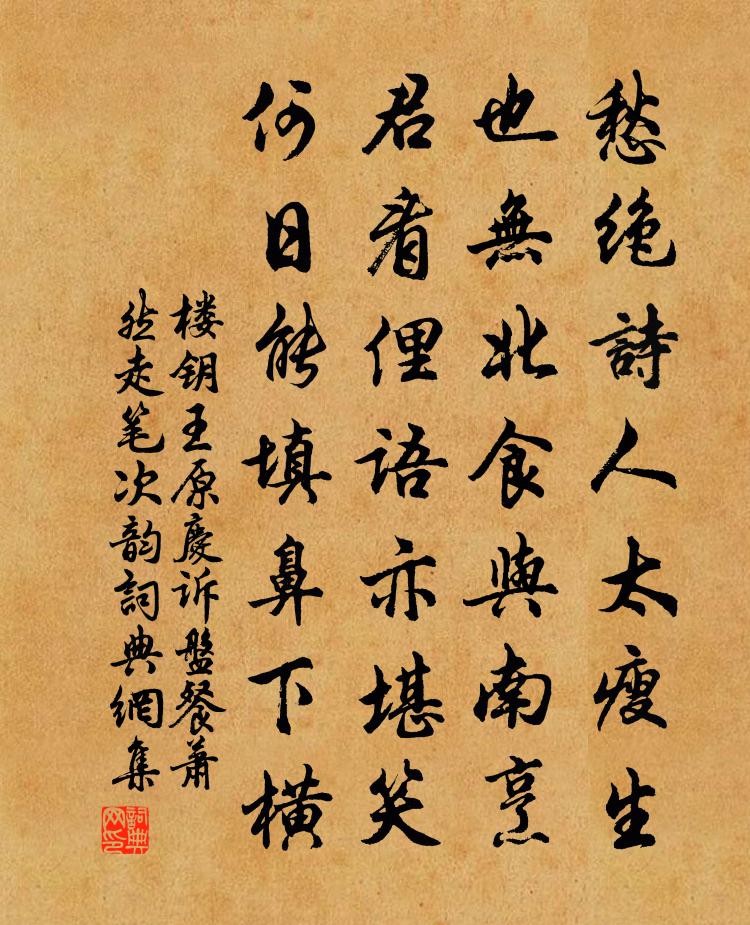 愁绝詩人太瘦生
也無北食與南烹
君看俚語亦堪笑
何日能填鼻下横
楼钥王原慶诉盤餐萧
然走笔次韵詞典網集
詞典网印